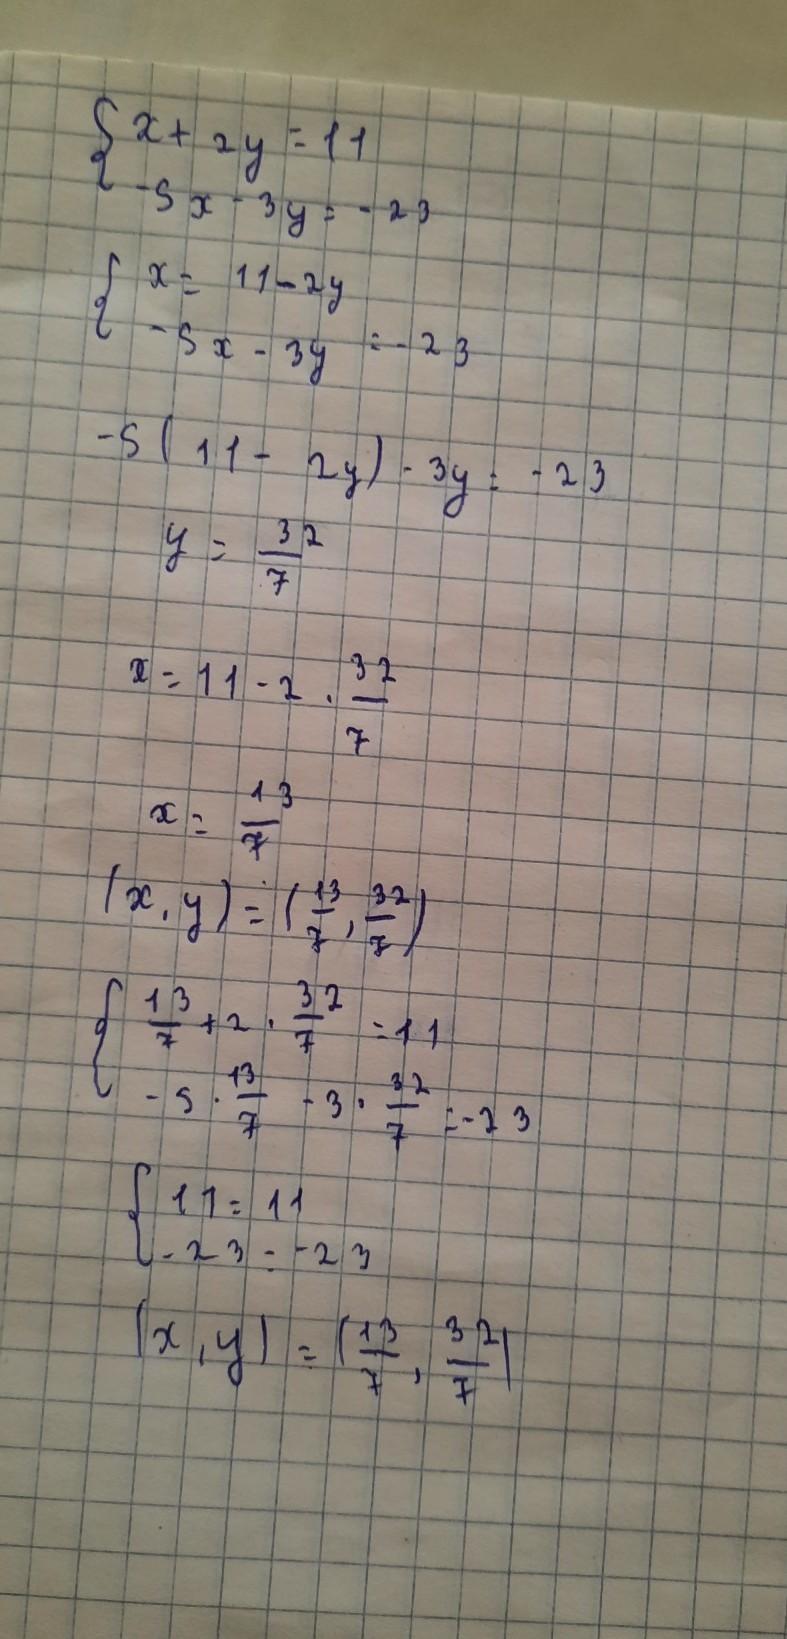 { x + 2y = 11
-5x - 3y = -23
{ x = 11 - 2y
-5x - 3y = -23
-5(11 - 2y) - 3y = -23
y = 32/7
x = 11 - 2 · 32/7
x = 13/7
(x, y) = (13/7, 32/7)
{ 13/7 + 2 · 32/7 = 11
-5 · 13/7 - 3 · 32/7 = -23
{ 11 = 11
-23 = -23
(x, y) = (13/7, 32/7)